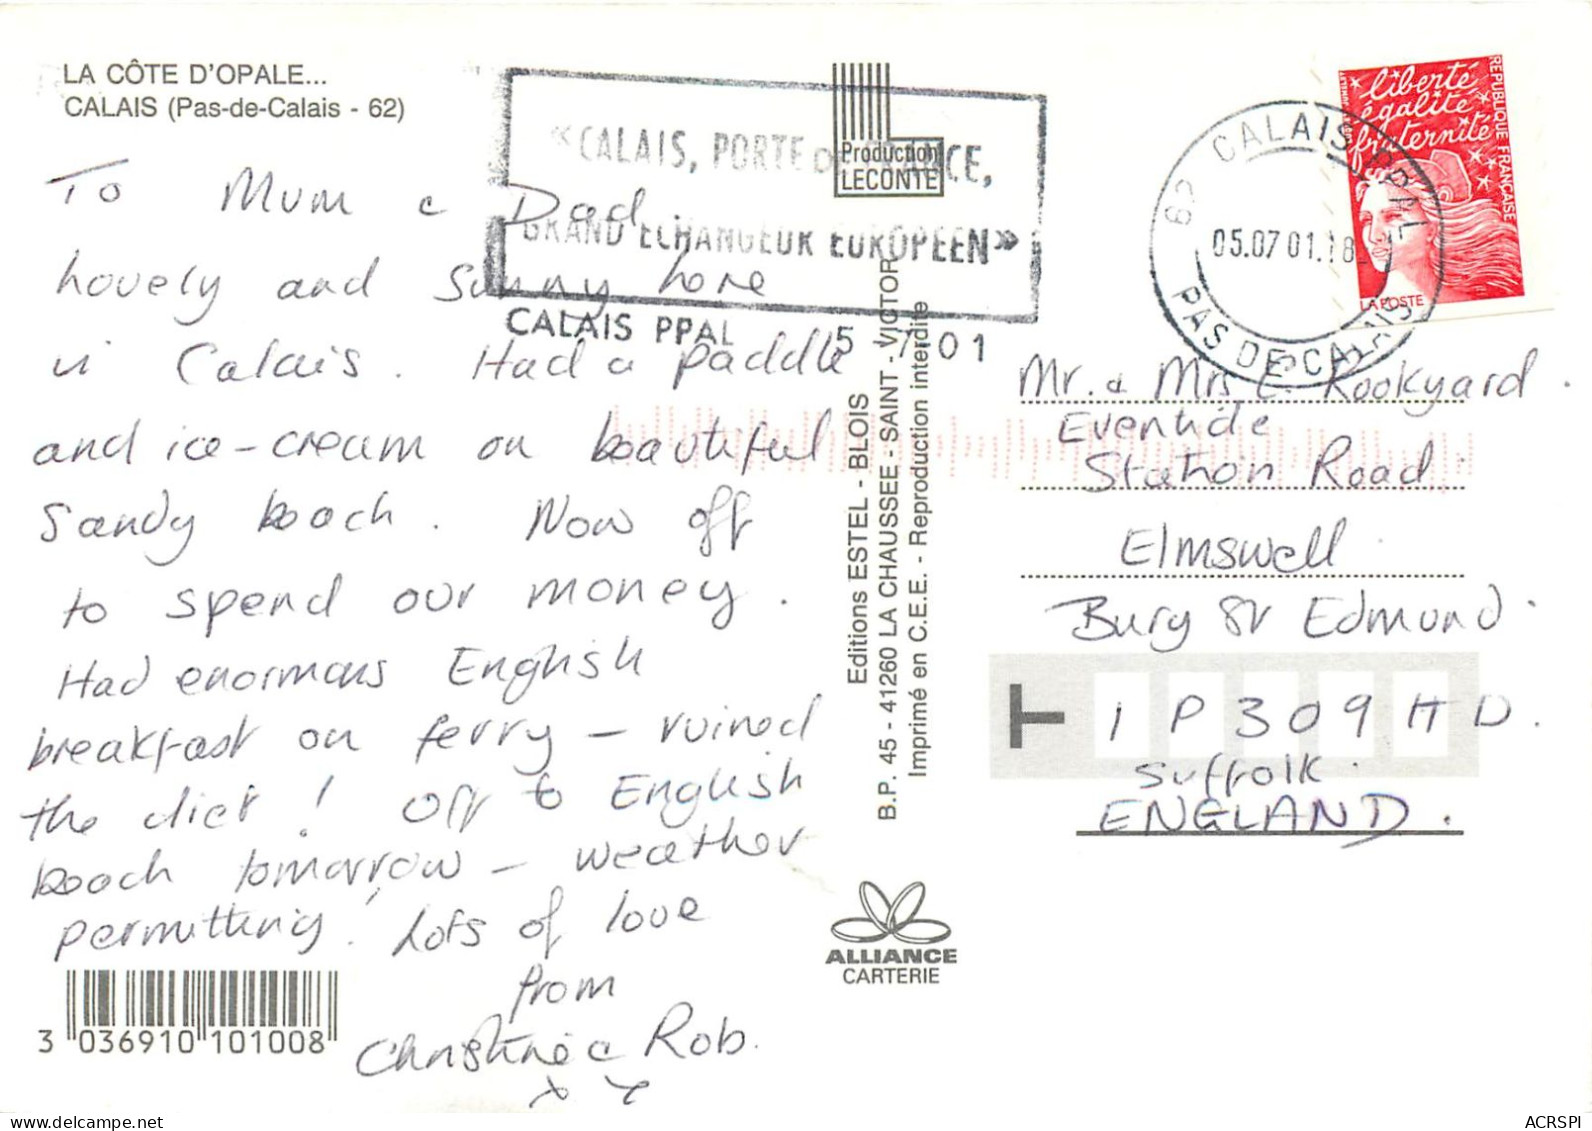 LA CÔTE D'OPALE...
CALAIS (Pas-de-Calais - 62)
To Mum & Dad.
Lovely and sunny here
in Calais. Had a paddle
and ice-cream on beautiful
sandy beach. Now off
to spend our money.
Had enormous English
breakfast on ferry – ruined
the diet! Off to English
beach tomorrow – weather
permitting! Lots of love
from
Christine & Rob.
x x
3 036910 101008
«CALAIS, PORTE DE FRANCE,
GRAND ECHANGEUR EUROPEEN»
CALAIS PPAL 5 7 01
Production
LECONTE
Editions ESTEL - BLOIS
B.P. 45 - 41260 LA CHAUSSEE - SAINT - VICTOR
Imprimé en C.E.E. - Reproduction interdite
ALLIANCE
CARTERIE
62 CALAIS PPAL
05.07 01.18
PAS DE CALAIS
liberté
égalité
fraternité
REPUBLIQUE FRANÇAISE
LA POSTE
Mr. & Mrs E. Rookyard.
Eventide
Station Road.
Elmswell.
Bury St Edmund.
T
IP309HD.
Suffolk.
ENGLAND.
delcampe.net
ACRSPI